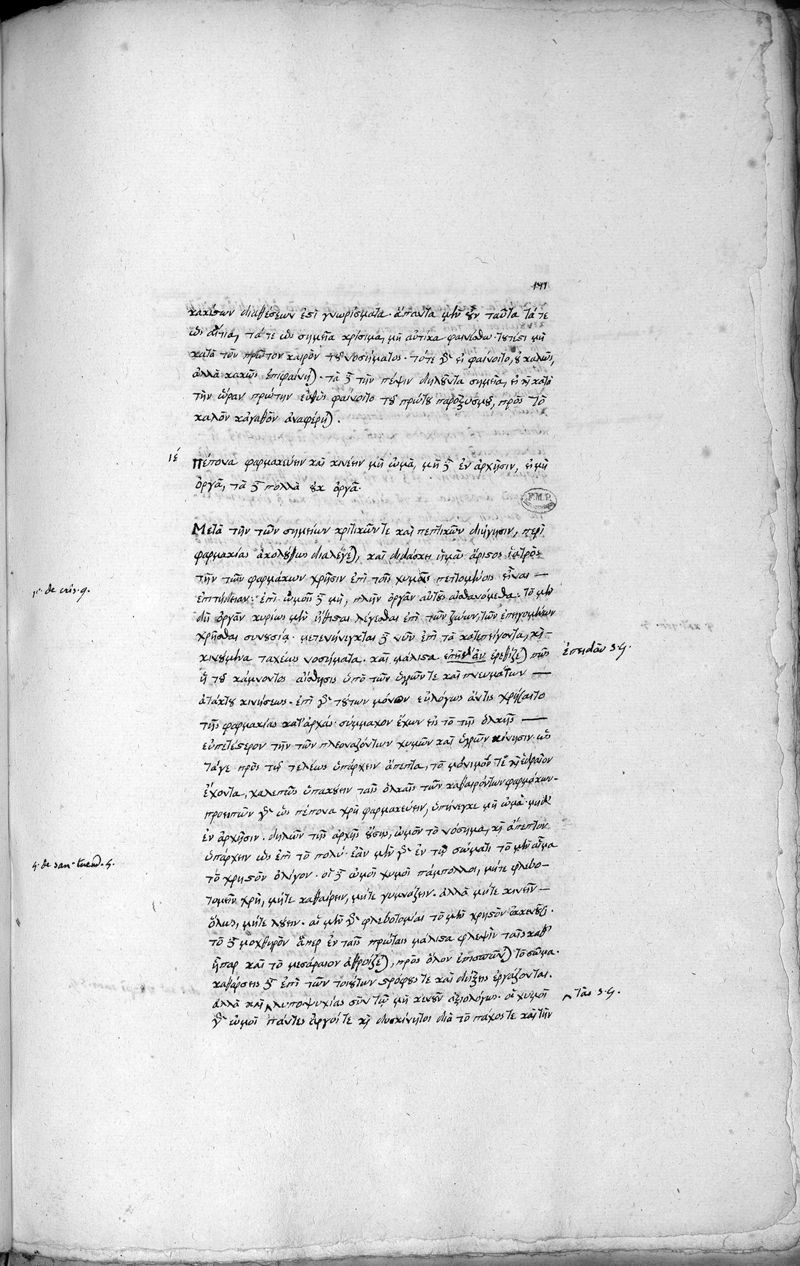 141
κακίστων διαθέσεων ἐστὶ γνωρίσματα. ἅπαντα μὲν οὖν ταῦτα τά τε
ὡς αἴτια, τά τε ὡς σημεῖα χρήσιμα, μὴ αὐτίκα φαινέσθω. τουτέστι μὴ
κατὰ τὸν πρῶτον καιρὸν τοῦ νοσήματος. τότε γὰρ εἰ φαίνοιτο, οὐ καλῶς,
ἀλλὰ κακῶς ἐπιφαίνεται. τὰ δὲ τὴν πέψιν δηλοῦντα σημεῖα, εἰ καὶ κατὰ
τὴν ὥραν πρώτην εὐθὺς φαίνοιτο τοῦ πρώτου παροξυσμοῦ, πρὸς τὸ
καλὸν κἀγαθὸν ἀναφέρεται.
ιέ Πέπονα φαρμακεύειν καὶ κινέειν μὴ ὠμὰ, μὴ δὲ ἐν ἀρχῇσιν, ἢν μὴ
ὀργᾷ, τὰ δὲ πολλὰ οὐκ ὀργᾷ.
F.M.P.
Μετὰ τὴν τῶν σημείων κριτικῶν τε καὶ πεπτικῶν διήγησιν, περὶ
φαρμακίας ἀκολούθως διαλέγεται, καὶ διδάσκει ἡμᾶς ἄριστος ἰατρὸς
1. de cris. 9. τὴν τῶν φαρμάκων χρῆσιν ἐπὶ τοῖς χυμοῖς πεπτομένοις εἶναι —
ἐπιτήδειαν. ἐπὶ ὠμοῖς δὲ μὴ, πλὴν ὀργᾶν αὐτοὺς αἰσθανόμεθα. τὸ μὲν
δὴ ὀργᾶν κυρίως μὲν εἴθισται λέγεσθαι ἐπὶ τῶν ζώων, τῶν ἐπειγομένων
χρῆσθαι συνουσίᾳ. μετενήνεγκται δὲ νῦν ἐπὶ τὰ κατεπείγοντα, καὶ
κινούμενα ταχέως νοσήματα. καὶ μάλιστα ἐπειδὰν ἐρεθίζεται πως ἐπειδὰν 3.G.
ἡ τοῦ κάμνοντος αἴσθησις ὑπὸ τῶν ὑγρῶν τε καὶ πνευμάτων —
ἀτάκτου κινήσεως. ἐπὶ γὰρ τούτων μόνον εὐλόγως ἄν τις χρήσαιτο
τῆς φαρμακίας κατ' ἀρχὰς. σύμμαχον ἔχων εἰς τὸ τῆς ὁλκῆς —
εὐπετέστερον τὴν τῶν πλεοναζόντων χυμῶν καὶ ὑγρῶν κίνησιν. ὡς
τά γε πρὸς τοῦ τελέως ὑπάρχειν ἄπεπτα, τὸ μόνιμόν τε καὶ ἑδραῖον
ἔχοντα, χαλεπῶς ὑπακούειν ταῖς ὁλκαῖς τῶν καθαιρόντων φαρμάκων.
προειπὼν γὰρ ὡς πέπονα χρὴ φαρμακεύειν, ὑπήνεγκε μὴ ὠμὰ. μηδὲ
ἐν ἀρχῇσιν. δηλῶν τῆς ἀρχῆς οὔσης, ὠμὸν τὸ νόσημα, καὶ ἄπεπτον
4. de san. tuend. 5. ὑπάρχειν ὡς ἐπὶ τὸ πολύ. ἐὰν μὲν γὰρ ἐν τῷ σώματι τὸ μὲν αἷμα
τὸ χρηστὸν ὀλίγον. οἱ δὲ ὠμοὶ χυμοὶ πάμπολλοι, μήτε φλεβο-
τομεῖν χρὴ, μήτε καθαίρειν, μήτε γυμνάζειν. ἀλλὰ μήτε κινεῖν —
ὅλως, μήτε λούειν. αἱ μὲν γὰρ φλεβοτομίαι τὸ μὲν χρηστὸν ἐκκενοῦσι.
τὸ δὲ μοχθηρὸν ἅπερ ἐν ταῖς πρώταις μάλιστα φλεψὶν ταῖς καθ'
ἧπαρ καὶ τὸ μεσάραιον ἀθροίζεται, πρὸς ὅλον ἐπισπῶνται τὸ σῶμα.
καθάρσεις δὲ ἐπὶ τῶν τοιούτων στρόφους τε καὶ δήξεις ἐργάζονται.
ἀλλὰ καὶ λειποψυχίας σὺν τῷ μὴ κενοῦν ἀξιολόγως. οἱ χυμοὶ τὰς 3.G.
γὰρ ὠμοὶ πάντες ἀργοί τε καὶ δυσκίνητοι διὰ τὸ πάχος τε καὶ τὴν